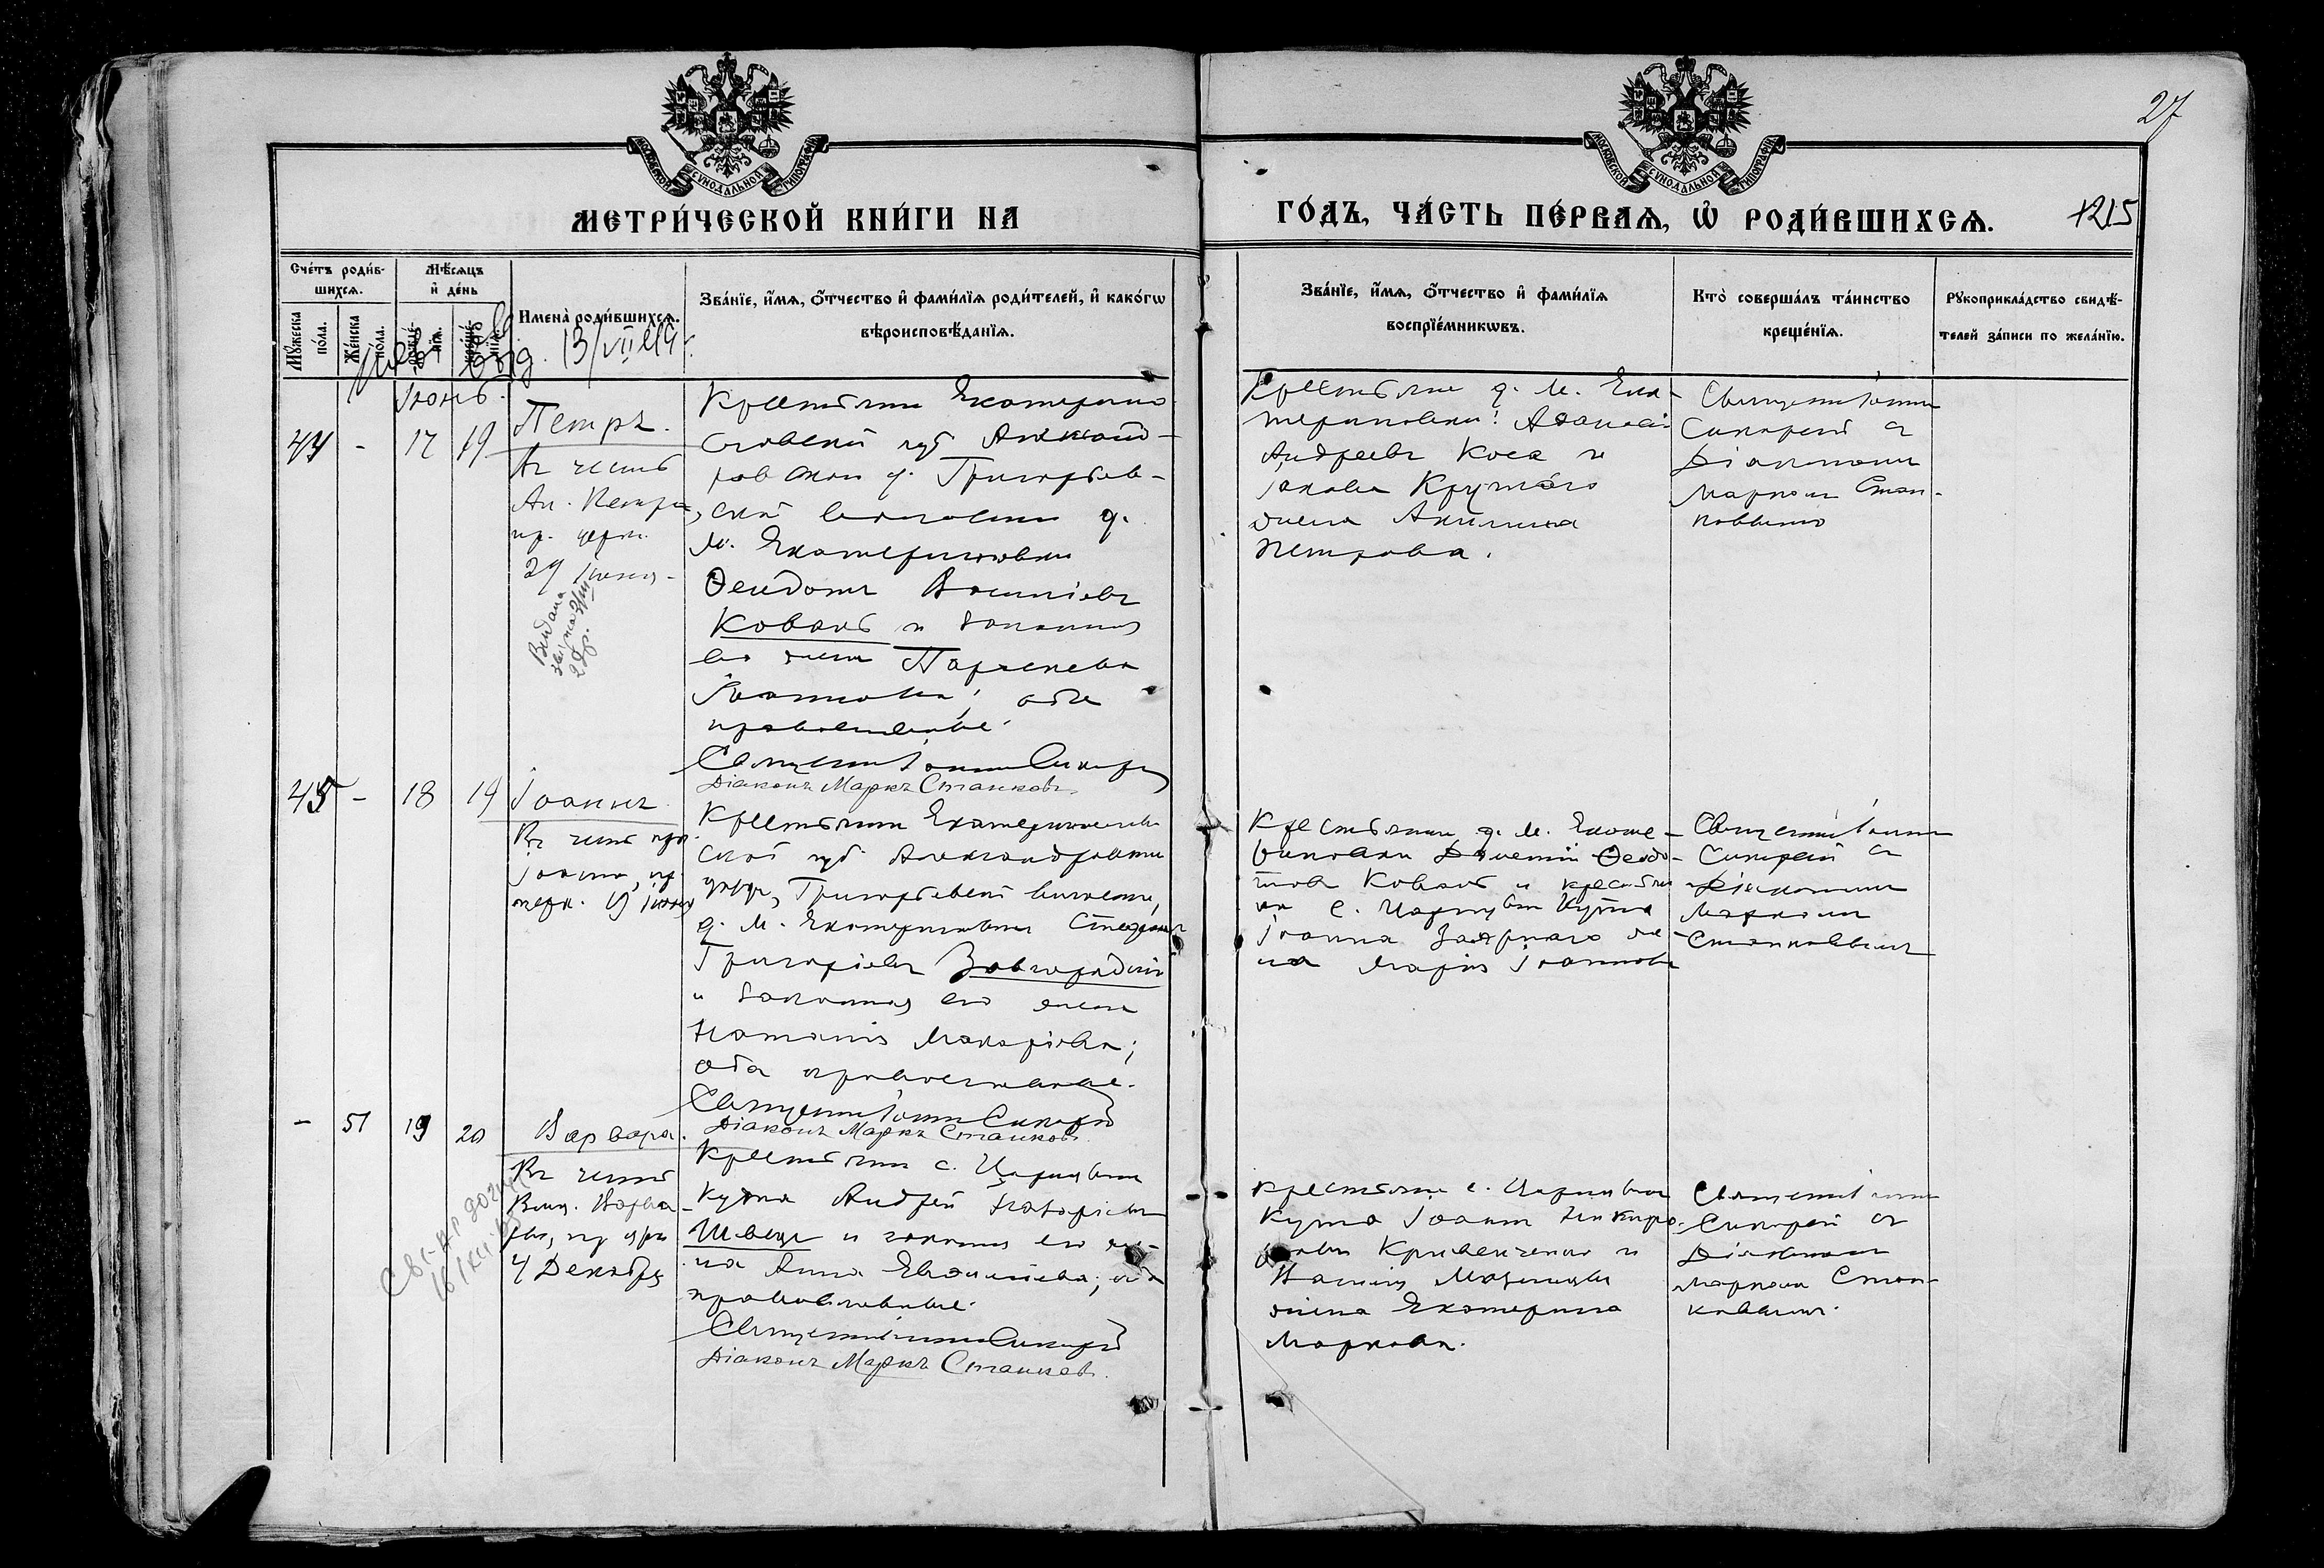 27
МОСКОВСКОЙ СѴНОДАЛЬНОЙ ТИПОГРАФІИ
МОСКОВСКОЙ СѴНОДАЛЬНОЙ ТИПОГРАФІИ
МЕТРИ́ЧЕСКОЙ КНИ́ГИ НА
ГО́ДЪ, ЧА́СТЬ ПЕ́РВАѦ, Ѡ҆ РОДИ́ВШИХСѦ.
1215
Сче́тъ роди́в-
шихсѧ.
Мꙋ́жеска
по́ла.
Же́нска
по́ла.
Мѣ́сѧцъ
и҆ де́нь
Имена̀ роди́вшихсѧ.
Зва́нїе, и҆́мѧ, ѻ҆́тчество и҆ фами́лїѧ роди́телей, и҆ како́гѡ
вѣроисповѣ́данїѧ.
Зва́нїе, и҆́мѧ, ѻ҆́тчество и҆ фами́лїѧ
воспрїе́мникѡвъ.
Кто̀ соверша́лъ та́инство
креще́нїѧ.
Рꙋкоприкла́дство свидѣ́-
телей за́писи по жела́нїю.
13/VII
Іюнь.
44 - 17 19
Петръ.
Въ честь
Ап. Петра
пр. церк.
29 Іюня
Выдана
Крестьянин Екатерино
славской губ. Александ-
ровскаго у. Григорьев-
ской волости д.
М. Екатериновки
Ѳеодотъ Васильевъ
Коваль и законная
его жена Параскева
Іоаннова; оба
православные.
Священник Іоанн Сикорскій
Діаконъ Маркъ Станковъ
Крестьяне д. М. Ека-
териновки: Аѳанасій
Андреевъ Коса и
Іакова Круглаго
жена Акилина
Петрова.
Священник Іоанн
Сикорскій съ
Діакономъ
Маркомъ Стан-
ковымъ
45 - 18 19
Іоаннъ
Въ честь пр.
Іоанна, пр.
церк. 19 Іюня
Крестьянин Екатеринослав
ской губ. Александровскаго
уезда, Григорьевской волости,
д. М. Екатериновки Стефанъ
Григорьевъ Завгородній
и законная его жена
Наталія Макаріева;
оба православные.
Священник Іоанн Сикорскій
Діаконъ Маркъ Станковъ.
Крестьянин д. М. Екате-
риновки Ѳеодо-
товъ Коваль и крестьян
ка с. Царицына Кута
Іоанна Заярнаго же
на Марія Іоаннова
Священник Іоанн
Сикорскій съ
Діакономъ
Маркомъ
Станковымъ
- 51 19 20
Варвара.
Въ честь
Влмц. Варва-
ры, пр. церк.
4 Декабря
16/XII
Крестьянин с. Царицына
Кута Андрей
Швецъ и законная его же-
на Анна; оба
православные.
Священник Іоанн Сикорскій
Діаконъ Маркъ Станковъ.
Крестьяне с. Царицына
Кута Іоанн
Кривенченко и
жена Екатерина
Маркова.
Священник Іоанн
Сикорскій съ
Діакономъ
Маркомъ Стан-
ковымъ.